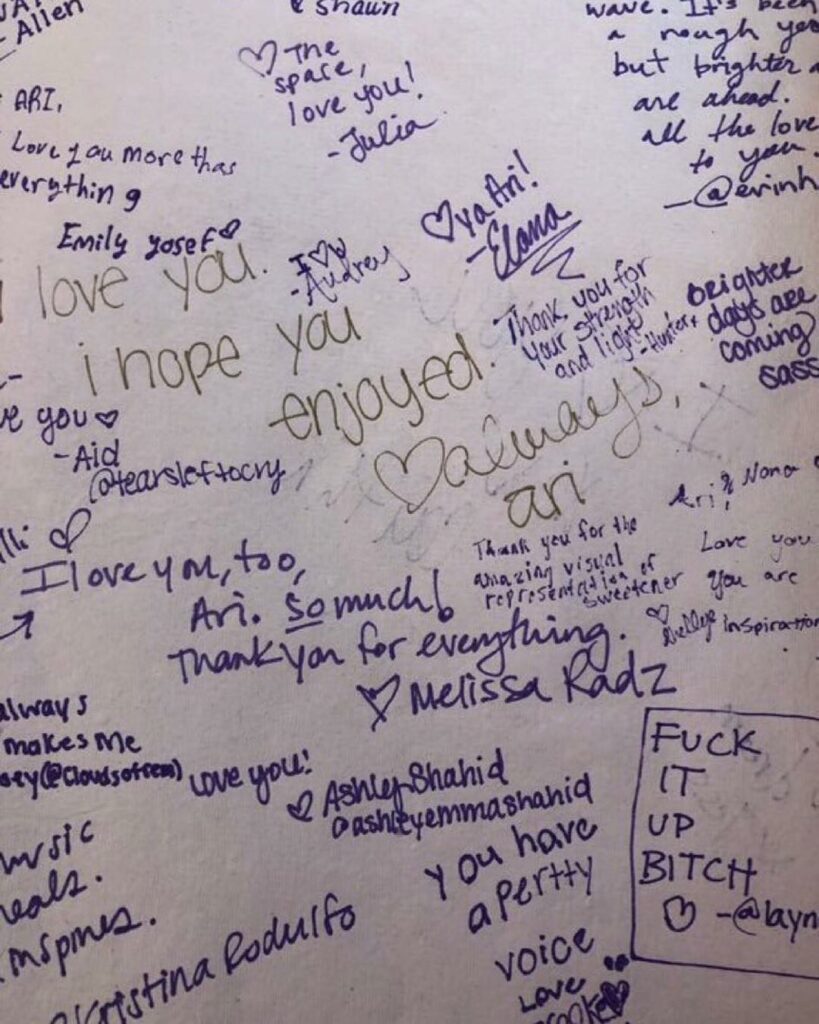 Allen
& Shaun
♡ The
space,
love you!
-Julia
wave. It's been
a rough
but brighter
are ahead.
all the love
to you.
-@evinh
ARI,
Love you more thas
everything
Emily yosef ♡
I ♡ U
-Audrey
♡ ya Ari!
-Elana
i love you.
i hope you
enjoyed.
♡ always,
ari
Thank you for
your strength
and light
-Hunter
Brighter
days are
coming
sass
you ♡
-Aid
@tearsleftocry
Ari, Nona
Love you
You are
inspiration
Thank you for the
amazing visual
representation of
sweetener
♡
I love you, too,
Ari. So much!
Thank you for everything.
♡ Melissa Radz
always
makes me
love you!
♡ Ashley Shahid
@ashleyemmashahid
music
Kristina Rodulfo
you have
a pertty
voice
Love
FUCK
IT
UP
BITCH
♡ -@layn